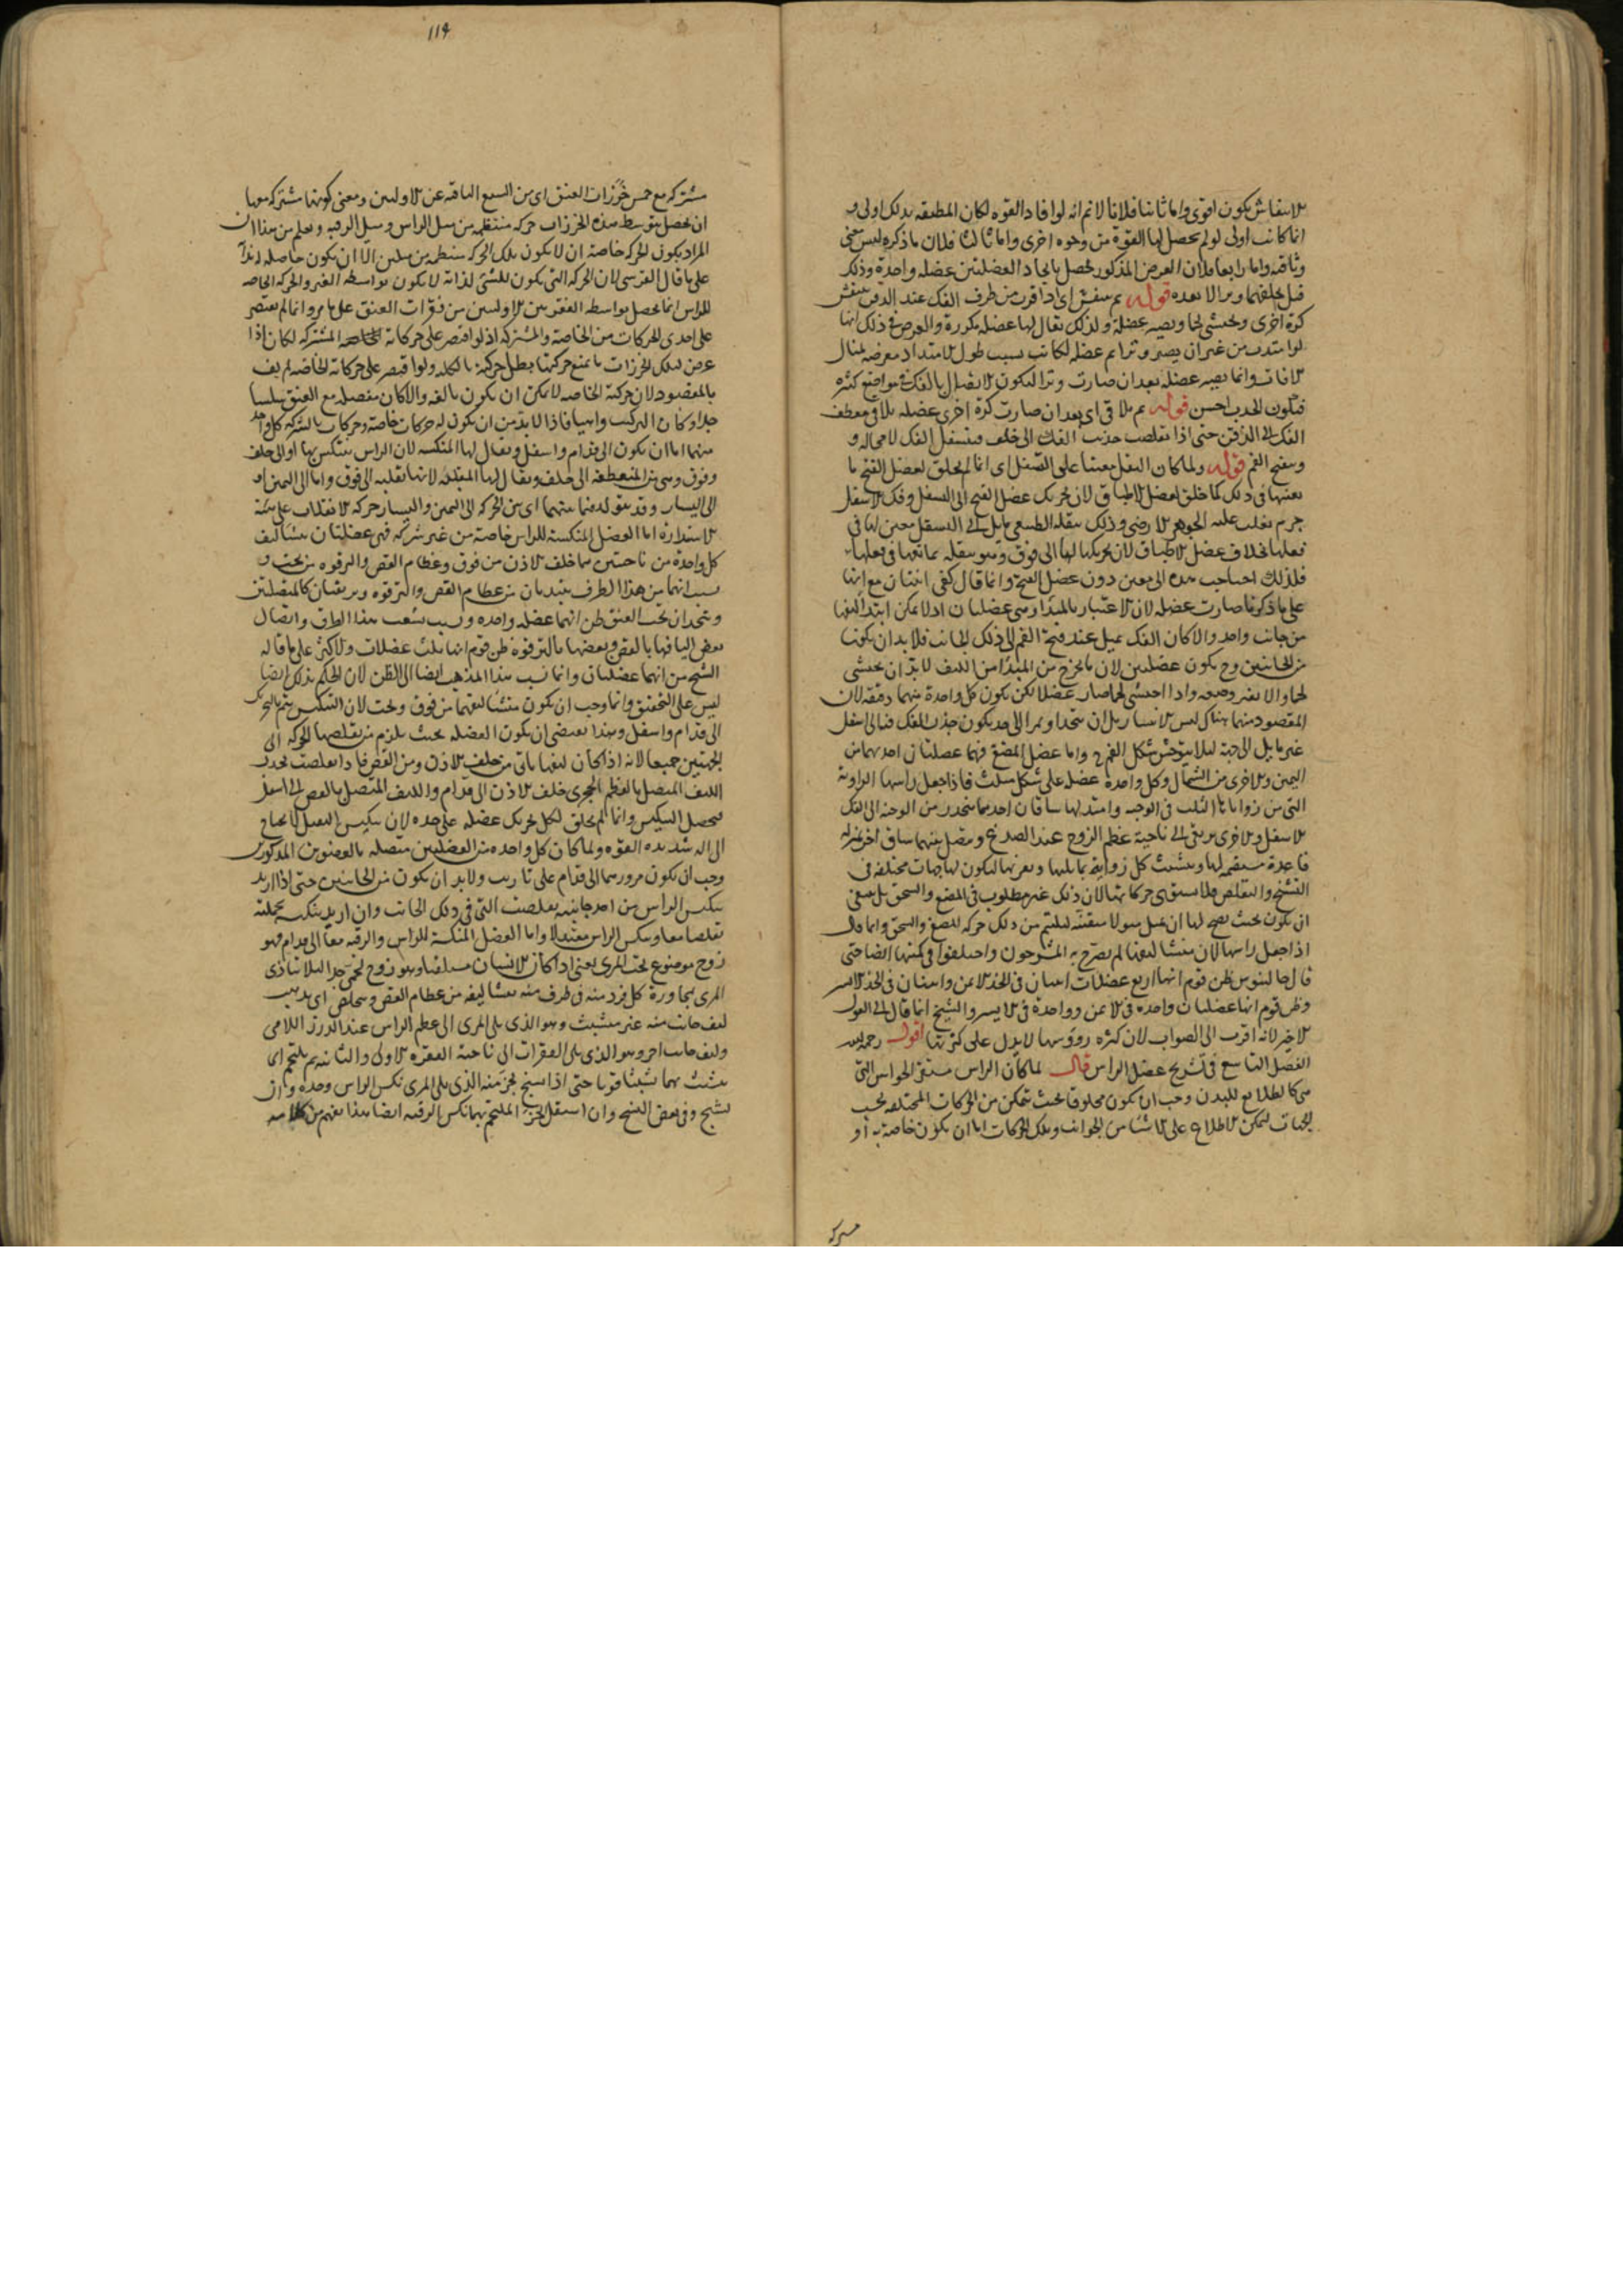 الانتفاش يكون اقوى واما ثانيا فلانا لا نم انه لو افاد القوه لكان المطبقه بذلك اولى و
انما كانت اولى لو لم يحصل لها القوة من وجوه اخرى واما ثالثا فلان ما ذكره ليس معنى
وثاقته واما رابعا فلان الغرض المذكور يحصل باتحاد العضلتين عضله واحدة وذلك
قبل وترا لا بعده قوله ثم ينتفش اى اذا قرب من طرف الفك عند الذقن ينتفش
كرة اخرى ويحتشى لحما ويصير عضلة ولذلك يقال لها عضله مكررة والغرض فى ذلك انها
لو امتدت من غير ان يصير وترا ثم عضله لكانت بسبب طول الامتداد معرضه لمنال
الافات وانما يصير عضلة بعد ان صارت وترا ليكون الاتصال بالفك فى مواضع كثيره
فيكون الجذب احسن قوله ثم يلاقى اى بعد ان صارت كرة اخرى عضله يلاقى معطف
الفك الى الذقن حتى اذا تقلصت جذبت الفك الى خلف فيتسفل الفك لا محاله و
وينفتح الفم قوله ولما كان الثقل معينا على التسفل اى انما لم يخلق لعضل الفتح ما
يعينها فى ذلك كما خلق لعضل الاطباق لان تحريك عضل الفتح الى السفل وفك الاسفل
جرم يغلب عليه الجوهر الارضى وذلك بثقله الطبيعى مايل الى التسفل معين لها فى
فعلها بخلاف عضل الاطباق لان تحريكها لها الى فوق وهو بثقله يمانعها فى فعلها
فلذلك احتاجت هذه الى معين دون عضل الفتح وانما قال كفى اثنتان مع انها
على ما ذكرنا صارت عضله لان الاعتبار بالمبدا وهى عضلتان اذ لا يمكن ابتدا ليفها
من جانب واحد والا كان الفك يميل عند فتحة الفم الى ذلك الجانب فلا بد ان يكونا
من الجانبين وح يكون عضلتين لان ما يخرج من المبدا من الليف لا بد ان يحتشى
لحما والا تغير وضعه واذا احتشى لحما صار عضلا لكن يكون كل واحدة منهما دقيقه لان
المقصود منهما هناك ليس الا بان يتحدا وتمرا الى حد يكون جذب الفك فيه الى اسفل
غير مايل الى جهة ليلا يتوحش شكل الفم واما عضل المضغ فهما عضلتان احدهما من
اليمين والاخرى من الشمال وكل واحدة عضل على شكل مثلث فاذا جعل راسها الزاوية
التى من زواياها الثلث فى الوجنه وامتد لها ساقان احدهما ينحدر من الوجنه الى الفك
الاسفل والاخرى يرتقى الى ناحية عظم الزوج عند الصدغ ويتصل بينهما ساق اخر بمنزله
قاعدة مستقيمه لها وتشبثت كل زوايه بما يليها وتعزبها ليكون لها جهات مختلفه فى
التشنج والتقلص فلا يستوى حركاتها لان ذلك غير مطلوب فى المضغ والسحق بل ينبغى
ان يكون بحيث يصح لها ان تميل ميولا متفننه ليلتئم من ذلك حركه المضغ والسحق وانما قال
اذا جعل راسها لان منشا ليفها لم يصرح به المشرحون واختلفوا فى كميتها ايضا حتى
قال جالينوس ظن قوم انها اربع عضلات اثنتان فى الخد الايمن واثنتان فى الخد الايسر
وظن قوم انها عضلتان واحده فى الايمن وواحدة فى الايسر والشيخ انما قال الى القول
الاخير لانه اقرب الى الصواب لان كثره رووسها لا يدل على كثرتها اقول رحمه الله
الفصل التاسع فى تشريح عضل الراس قال لما كان الراس مستقر الحواس التى
هى كالطلايع للبدن وجب ان يكون مخلوقا بحيث يتمكن من الحركات المختلفه بحسب
الجهات ليمكن الاطلاع على الاشيا من الجوانب وتلك الحركات اما ان يكون خاصة به او
مشتركه
119
مشتركه مع خمس خرزات العنق اى من السبع الباقيه عن الاوليين ومعنى كونها مشتركه معها
ان تحصل بتوسط هذه الخرزات حركه منتظمه من ميل الراس وميل الرقبه ويعلم من هذا ان
المراد بكون الحركه خاصة ان لا يكون تلك الحركه منتظمه من ميلين الا ان يكون حاصله لذاتها
على ما قال القرشى لان الحركه التى تكون للشى لذاته لا تكون بواسطه الغير والحركه الخاصه
للراس انما تحصل بواسطه الفقرتين الاوليين من فقرات العنق على ما مر وانما لم يقتصر
على احدى الحركات من الخاصة والمشتركه اذ لو اقتصر على حركاته المشتركه لكان اذا
عرض لتلك الخرزات ما يمنع حركتها بطل حركته بالكليه ولو اقتصر على حركاته الخاصه لم يف
بالمقصود لان حركته الخاصه لا يمكن ان يكون بالغه والا كان مفصله مع العنق سلسا
جدا وكان التركيب واهيا فاذا لا بد من ان يكون له حركات خاصة وحركات بالشركه كل واحد
منهما اما ان يكون الى قدام واسفل ويقال لها المنكسه لان الراس ينتكس بها او الى خلف
وفوق وهى من المنعطفه الى خلف ويقال لها المقلبه لانها تقلبه الى فوق واما الى اليمين او
الى اليسار وقد يتولد فيما بينهما اى من الحركه الى اليمين واليسار حركه الانقلاب على هيئه
الاستدارة اما العضل المنكسه للراس خاصة من غير شركه فهى عضلتان منشا ليف
كل واحدة من ناحيتين مما خلف الاذن من فوق وعظام القص والترقوه من تحت و
سبب انهما من هذا الطرف يبتديان من عظام القص والترقوه ويرتقيان كالمتصلتين
ويتحدان تحت العنق ظن انهما عضله واحده وبسبب تشعب هذا الطرف واتصال
بعض اليافها بالقص وبعضها بالترقوه ظن قوم انها ثلث عضلات والاكثر على ما قاله
الشيخ من انهما عضلتان وانما نسب هذا المذهب ايضا الى الظن لان الحكم بذلك ايضا
ليس على التحقيق وانما وجب ان يكون منشا ليفهما من فوق وتحت لان التنكيس يتم بالتحريك
الى قدام واسفل وهذا يقتضى ان يكون العضله بحيث يلزم من تقلصها الحركه الى
الجهتين جميعا لانه اذا كان ليفها ياتى من خلف الاذن ومن القص فاذا تقلصت يجذب
الليف المتصل بالعظم الحجرى خلف الاذن الى قدام والليف المتصل بالقص الى اسفل
فيحصل التنكيس وانما لم يخلق لكل تحريك عضله على حده لان تنكيس الثقيل لا يحتاج
الى اله شديده القوه ولما كان كل واحده من العضلتين متصله بالعضوين المذكورين
وجب ان يكون مرورهما الى قدام على تاريب ولا بد ان يكون من الجانبين حتى اذا اريد
تنكيس الراس من احد جانبيه تقلصت التى فى ذلك الجانب وان اريد تنكيسه بجملته
تقلصتا معا وينكس الراس معتدلا واما العضل المنكسة للراس والرقبه معا الى قدام فهو
زوج موضوع تحت المرى يعنى اذا كان الانسان مستلقيا وهو زوج لحمى جدا ليلا يتاذى
المرى بمجاورة كل فرد منه فى طرف منه منشا ليفه من عظام القص ويتخلص اى يذهب
ليف جانب منه غير متشبث وهو الذى يلى المرى الى عظم الراس عند الدرز اللامى
وليف جانب اخر وهو الذى يلى الفقرات الى ناحية الفقره الاولى والثانيه ثم يلتحم اى
يتشبث بهما تشبثا قويا حتى اذا تشنج بجزء منه الذى يلى المرى نكس الراس وحده وان
تشنج وفى بعض النسخ وان استعمل الجزء الملتحم بهما نكس الرقبه ايضا هذا يفهم من كلامه